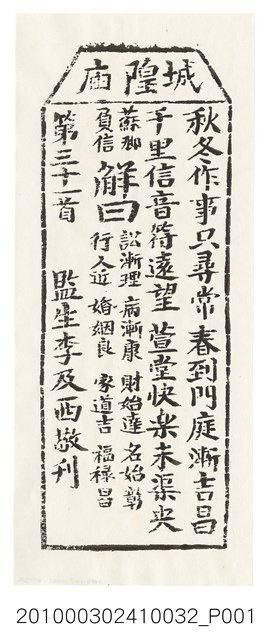 城隍廟
秋冬作事只尋常 春到門庭漸吉昌
千里信音符遠望 萱堂快樂未渠央
蘇卿負信
解曰
訟漸理 病漸康 財始達 名始彰
行人近 婚姻良 家道吉 福祿昌
第三十一首 監生李及西敬刊
201000302410032_P001